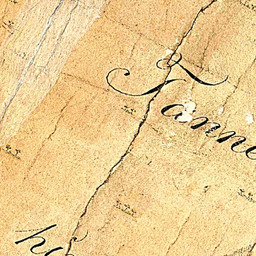 Tanne
hö